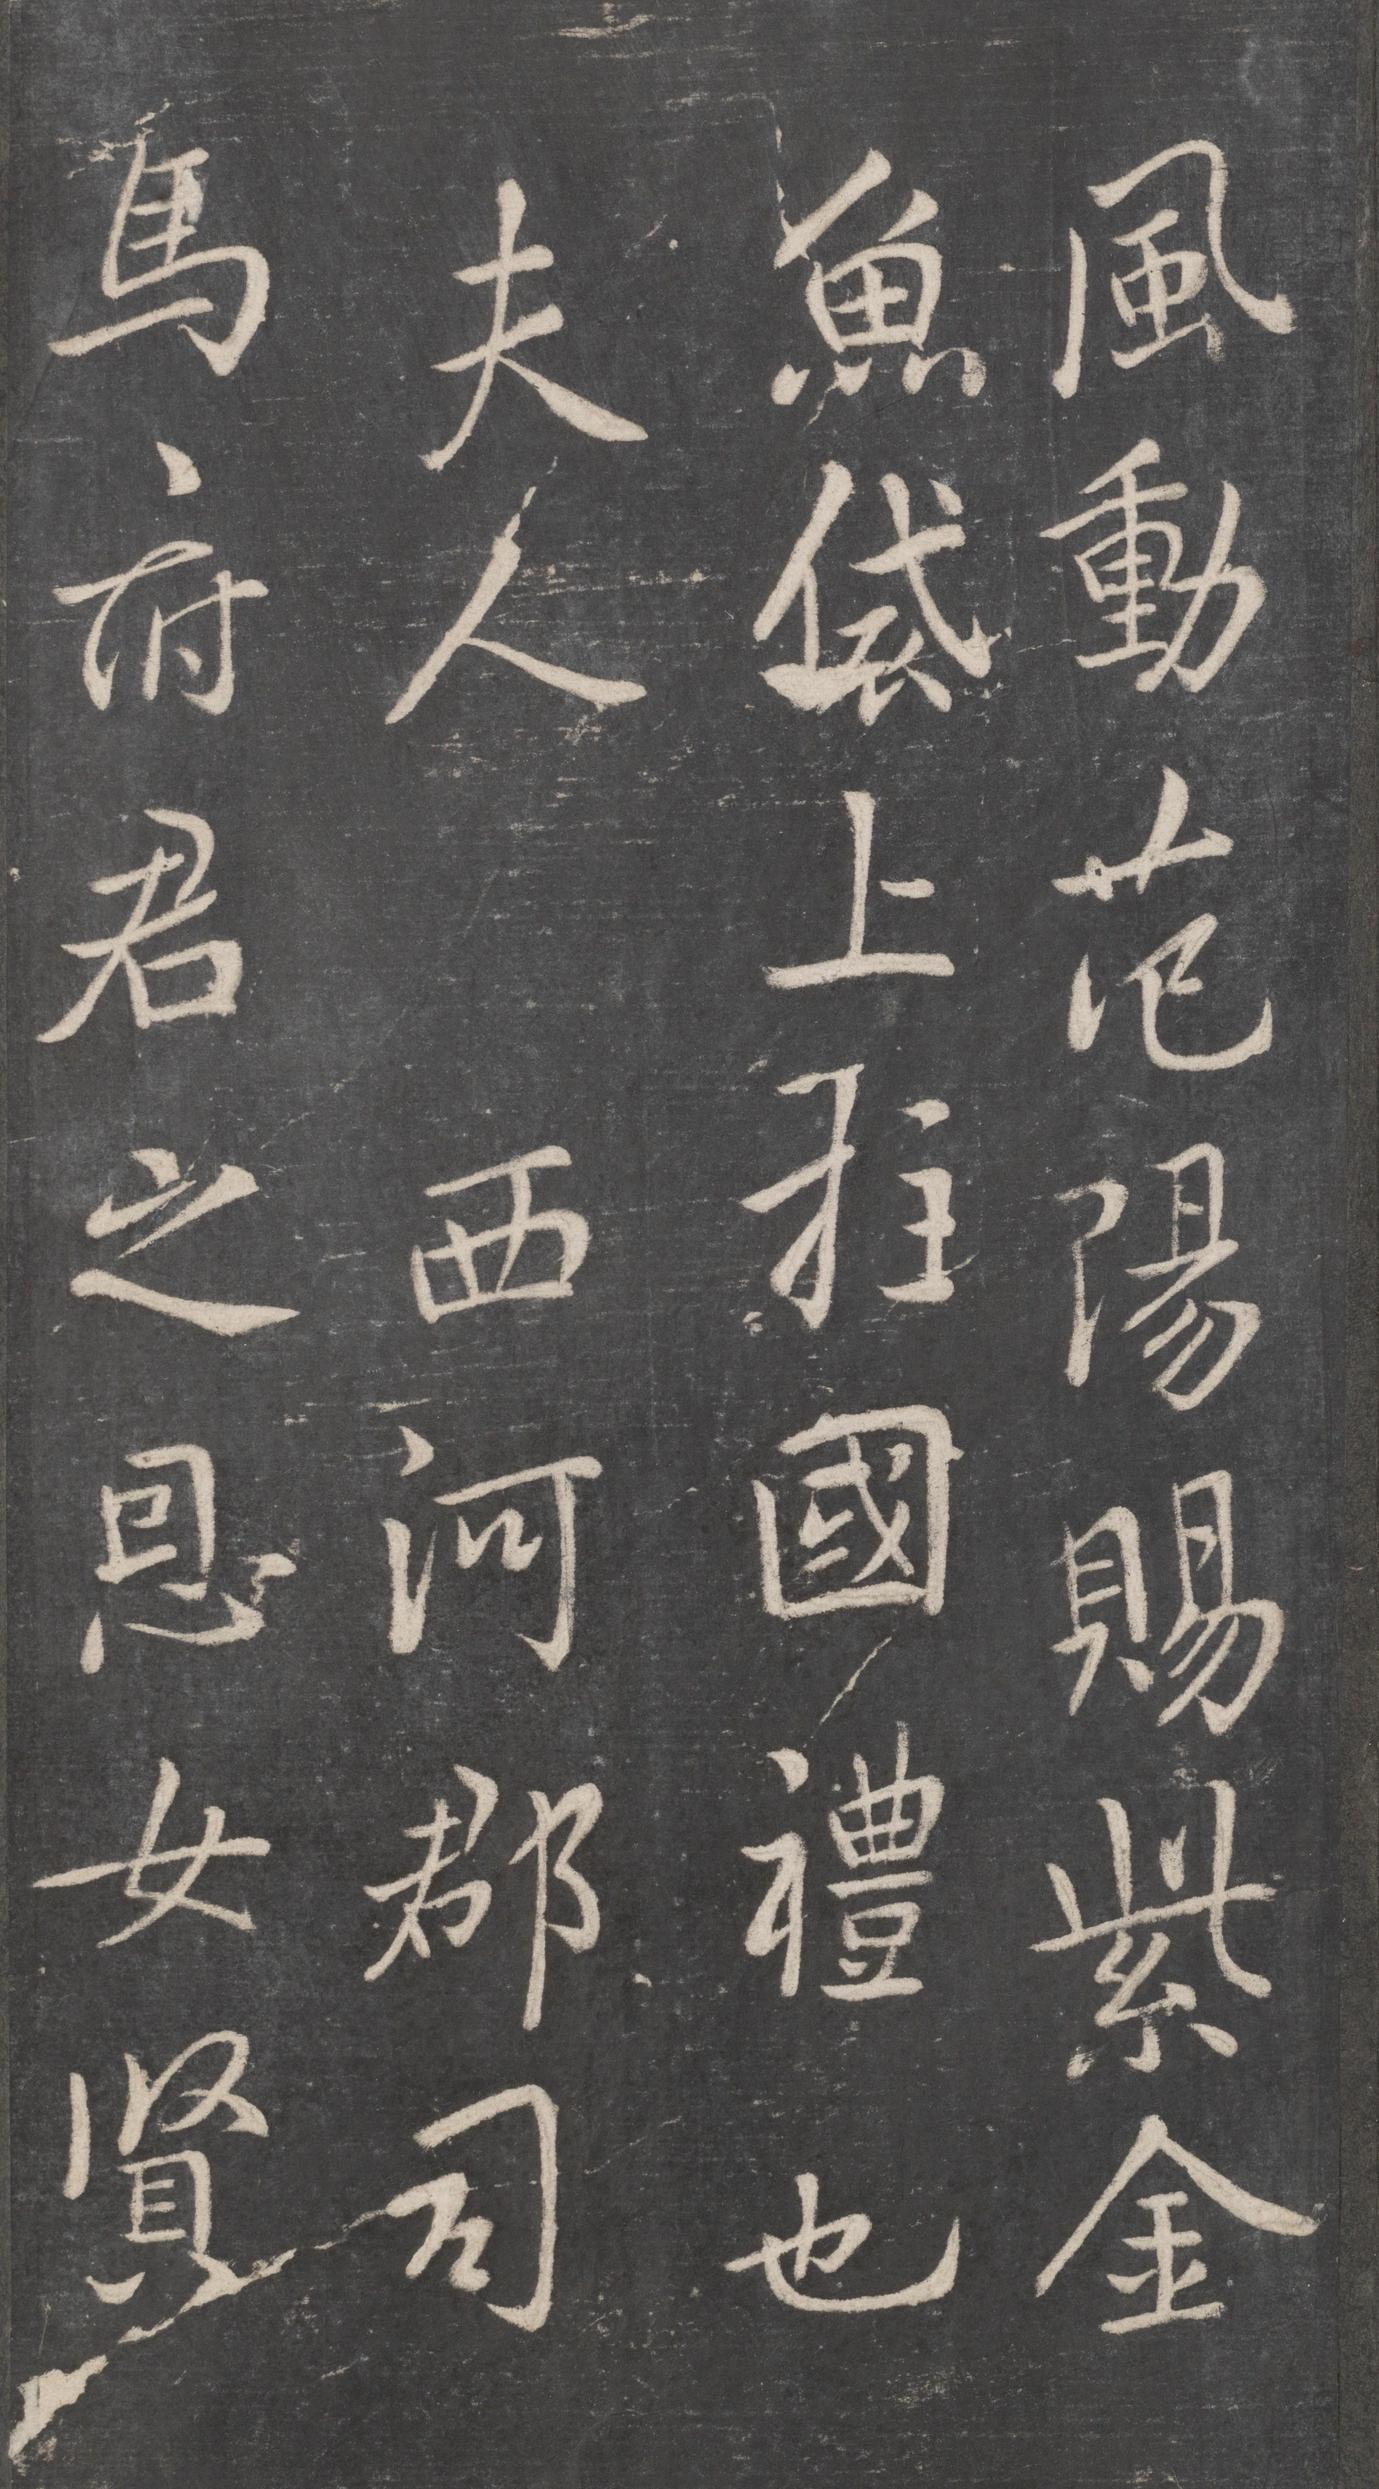 風動范陽賜紫金
魚袋上柱國禮也
夫人 西河郡司
馬府君之恩女賢